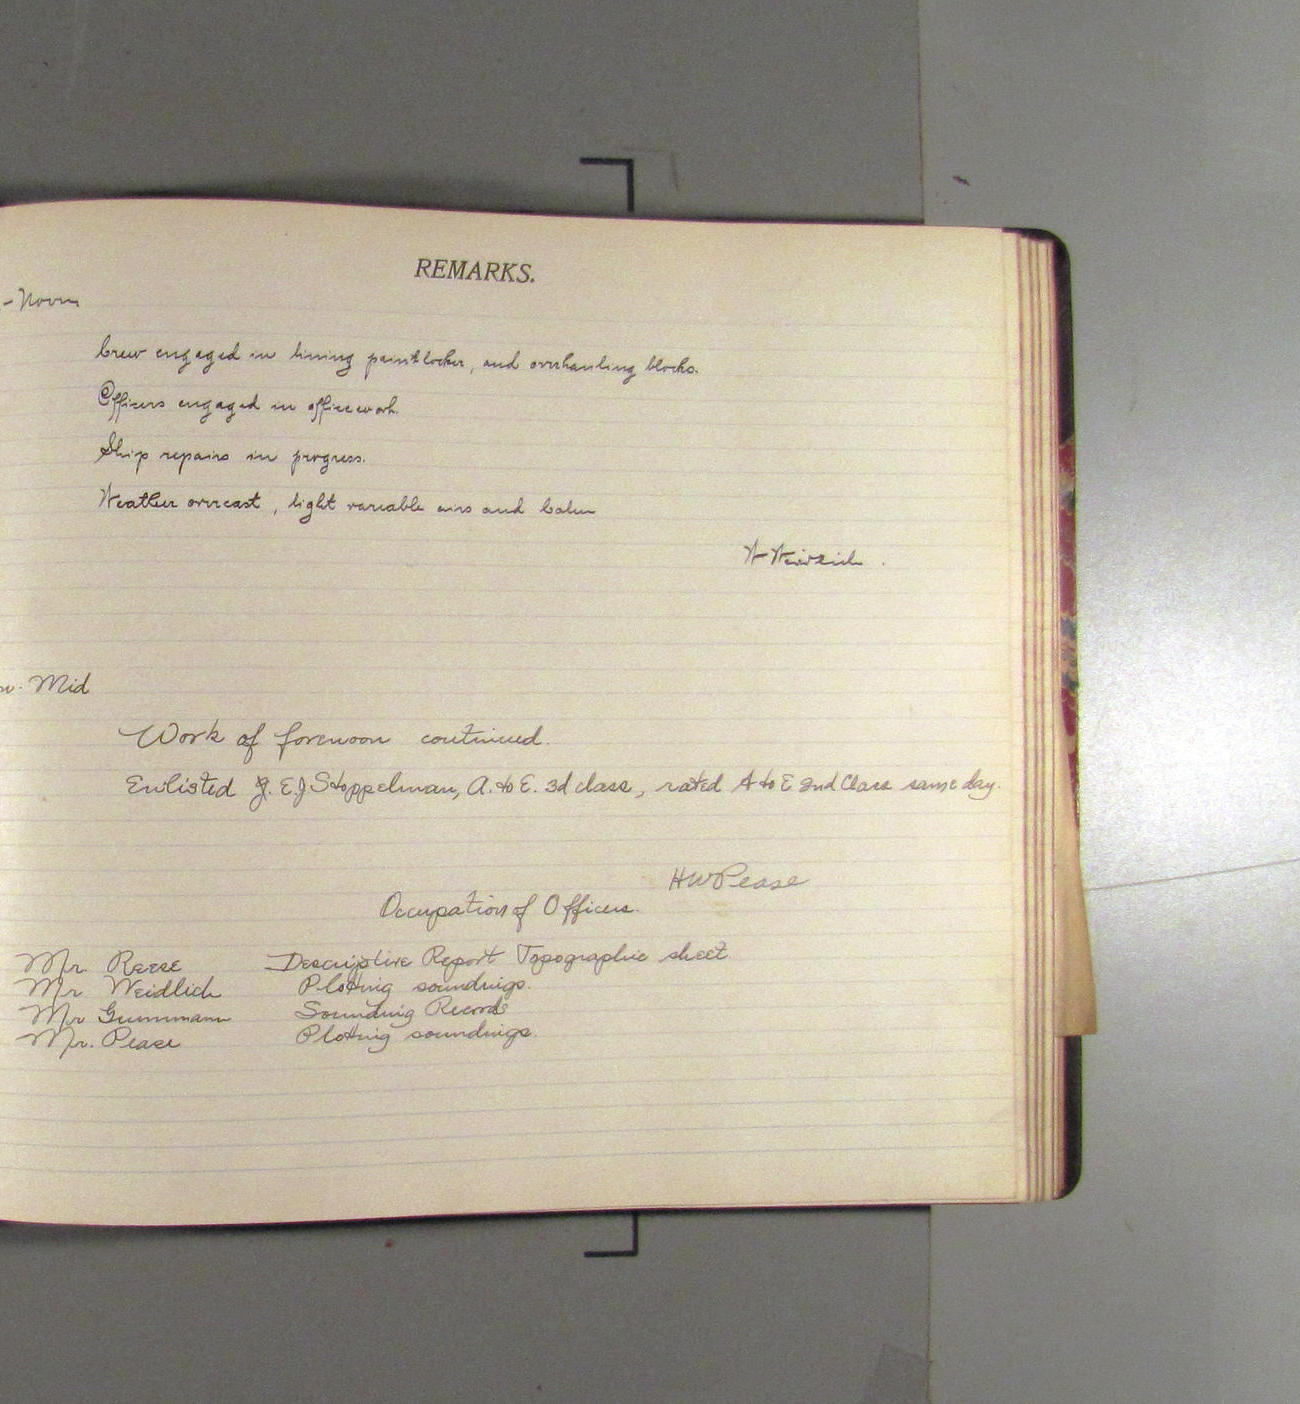 REMARKS.
-Noon
Crew engaged in lining paintlocker, and overhauling blocks.
Officers engaged in officework.
Ship repairs in progress.
Weather overcast, light variable airs and calm
Mid
Work of forenoon continued.
Enlisted J. E. J Stoppelman, A. to E. 3d class, rated A to E 2nd Class same day.
HWPease
Occupation of Officers.
Mr. Reese Descriptive Report Topographic sheet.
Mr Weidlich Ploting soundings.
Mr Gummann Sounding Records
Mr. Pease Ploting soundings.